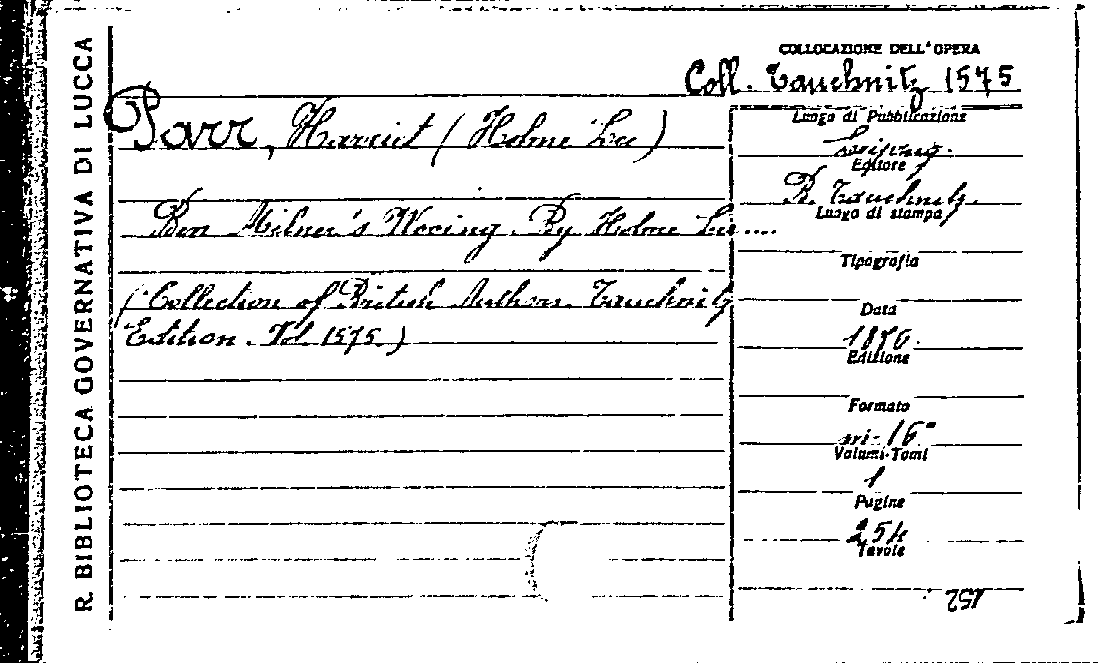 R. BIBLIOTECA GOVERNATIVA DI LUCCA
COLLOCAZIONE DELL'OPERA
Coll. Tauchnitz 1575
Parr, Harriet (Holme Lee)
Ben Milner's Wooing. By Holme Lee....
(Collection of British Authors. Tauchnitz
Edition. Vol. 1575.)
Luogo di Pubblicazione
Leipzig.
Editore
B. Tauchnitz.
Luogo di stampa
Tipografia
Data
1876.
Edizione
Formato
in-16°
Volumi-Tomi
1
Pagine
254
Tavole
152